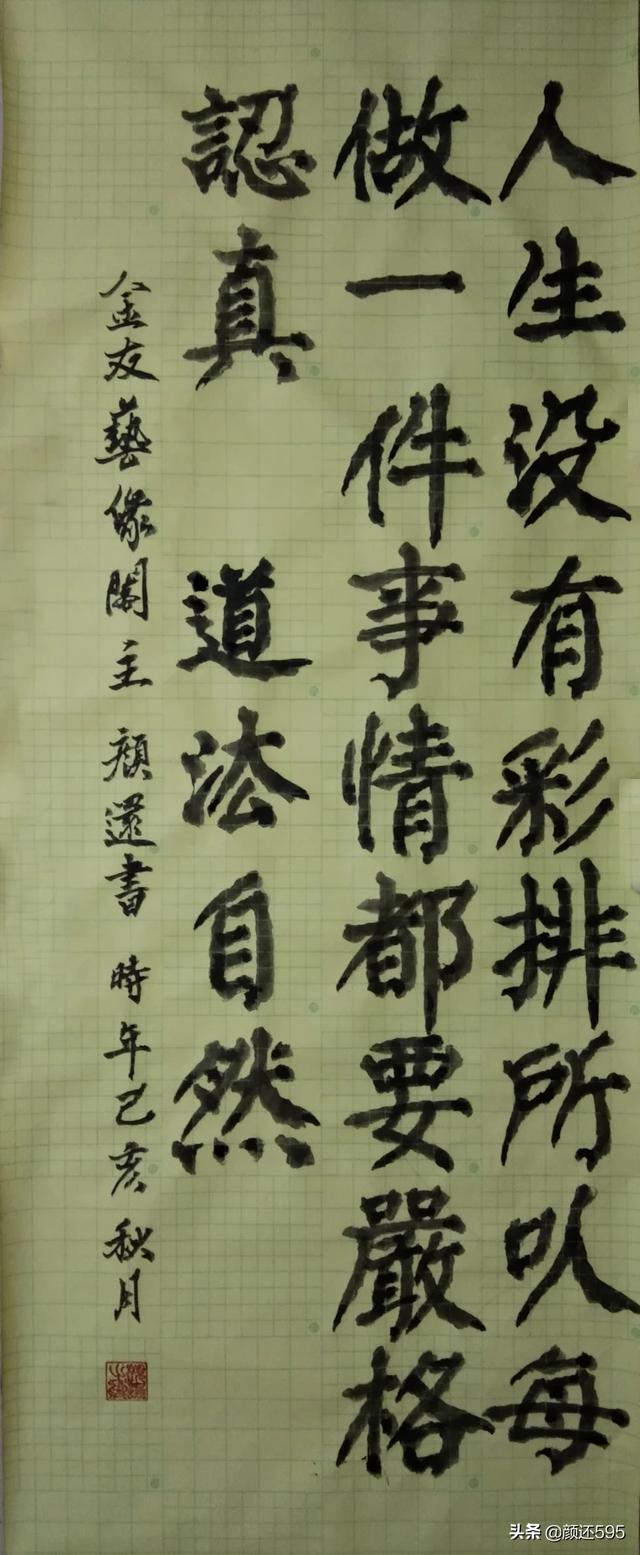 人生没有彩排所以每
做一件事情都要嚴格
認真 道法自然
金友藝缘閣主 顔還書 時年己亥秋月
头条 @颜还595